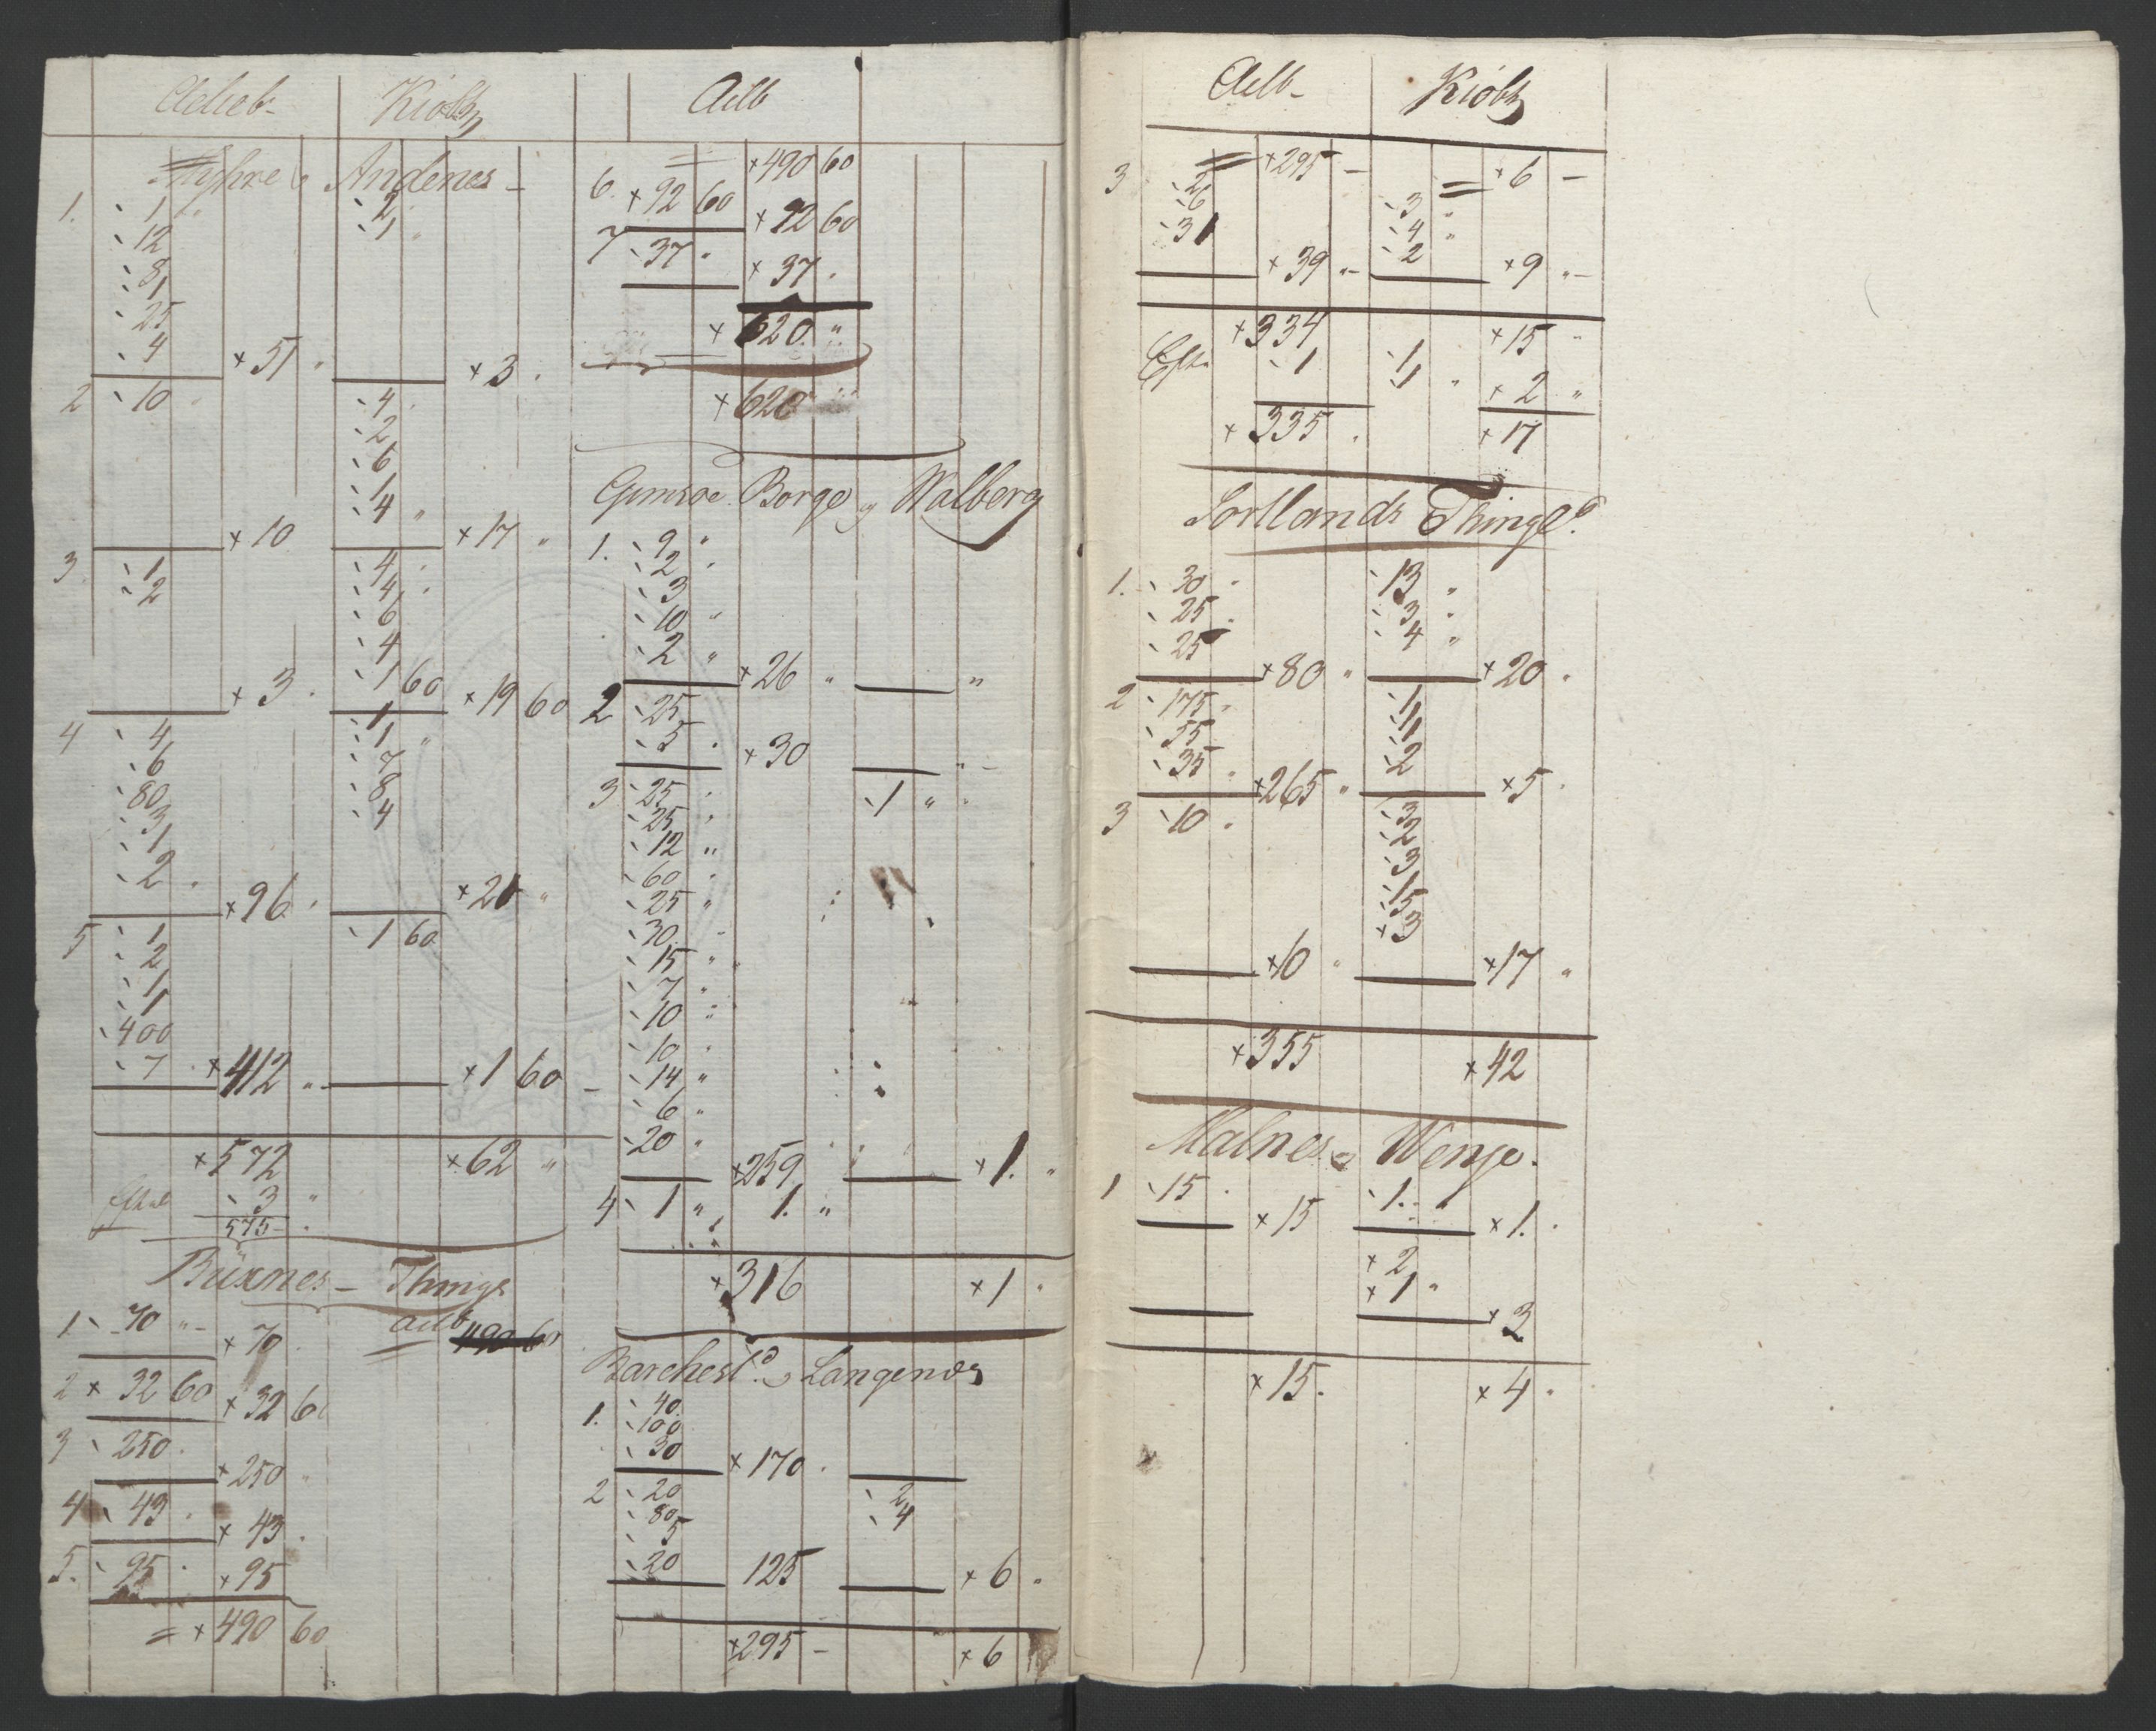 Aelieb- Kiøbh
Myhre & Andenes -
1. 1 2
12 1
8
1
25
4 × 51 × 3
2 10 4
2
6
1
4
× 10 × 17
3 1 4
2 4
6
4
× 3 1 60 × 19 60
4 4 1
6 1
80 7
3 8
1 4
2
× 96 × 21
5 1 1 60
2
1
1
400
7 × 412 × 1 60
× 572 × 62
3
575
Buxnes - Things
Aelb 490 60
1 70 × 70
2 × 32 60 × 32 60
3 250 × 250
4 43 × 43
5. 95 × 95
= × 490 60
Aelb
= × 490 60
6 × 92 60 × 92 60
7 37 × 37
× 620 "
× 620
Gimsøe Borge og Walberg
1. 9
2
3
10
2 × 26 "
2 25
5 × 30 "
3 25 1 "
25
12
60
25
30
15
7
10
10
14
6
20
× 259 × 1.
4 1 " 1. "
× 316 × 1
Barchest. & Langenæs
1. 40
100
30 × 170
2 20 2
80 4
5
20 125 × 6
× 295 - × 6
Aelb- Kiøbh
= × 295 - = × 6 -
3 2 3
6 4
31 2
× 39 " - × 9 " -
× 334 × 15
Efter 1 1
1 × 2 "
× 335 × 17
Sortlands Thingl.
1. 30 13
25 3
25 4
× 80 × 20
2 175 1
55 1
35 1
2
× 265 × 5
3 10 3
2
3
1
5
× 3
× 10 × 17
× 355 × 42
Malnes & Wenje.
1 15 1.
× 15 × 1.
× 2
× 1
× 3
× 15. × 4